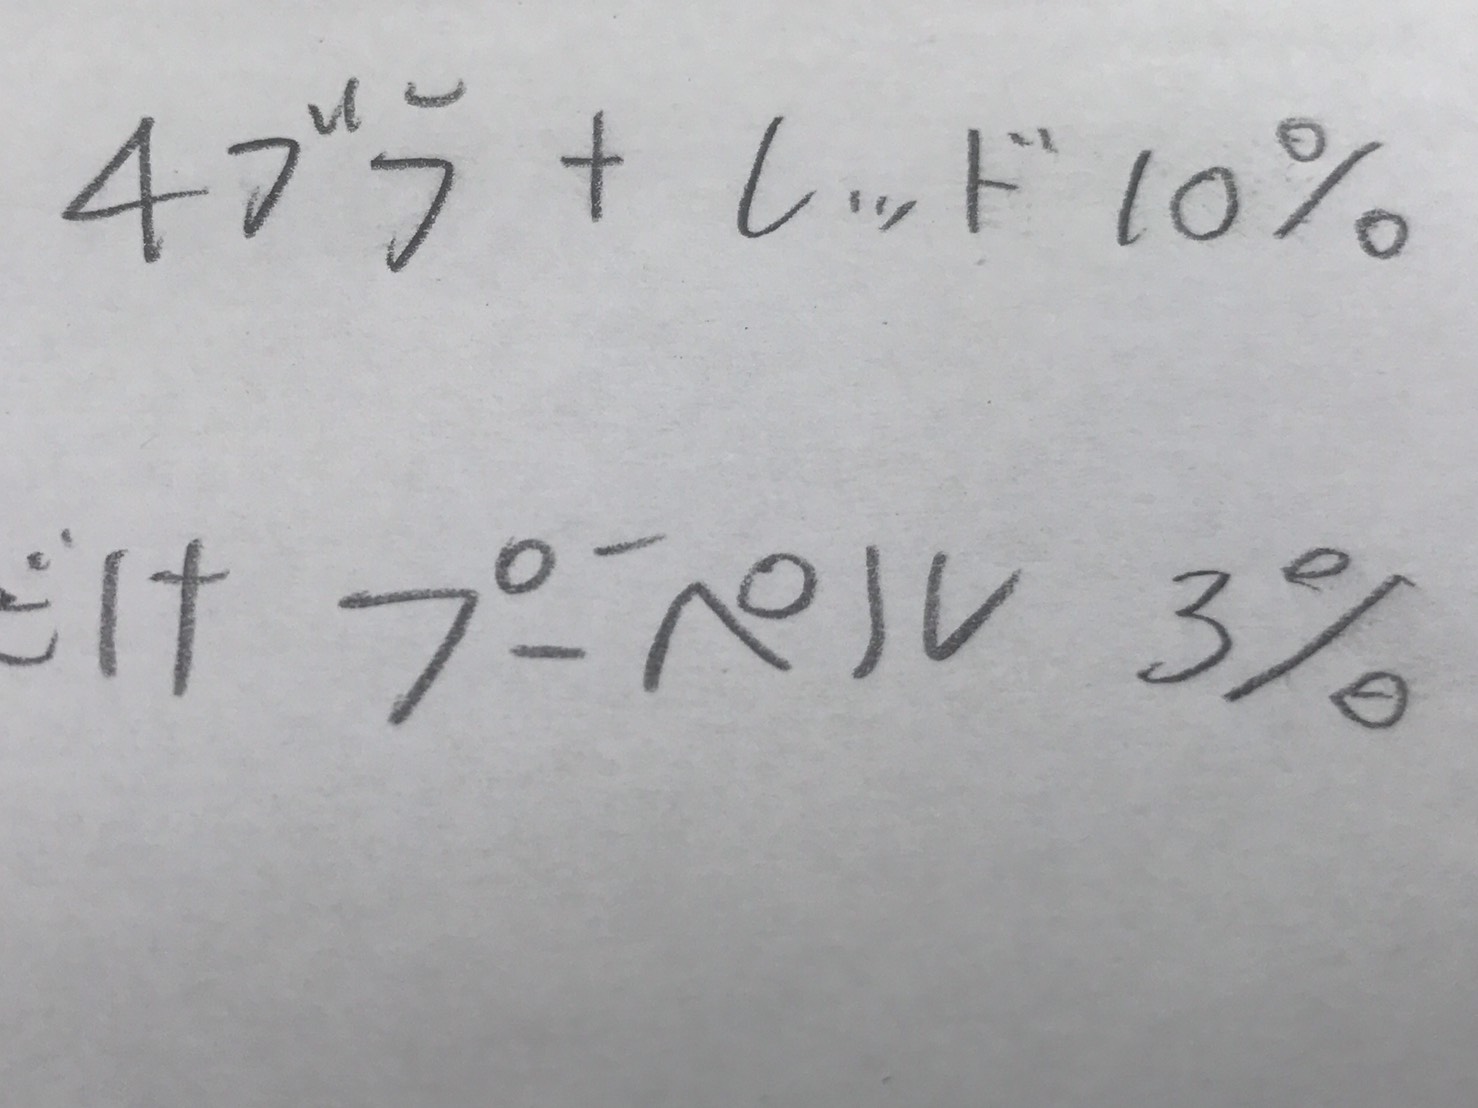 4ブラ + レッド 10%
だけ プニペル 3%